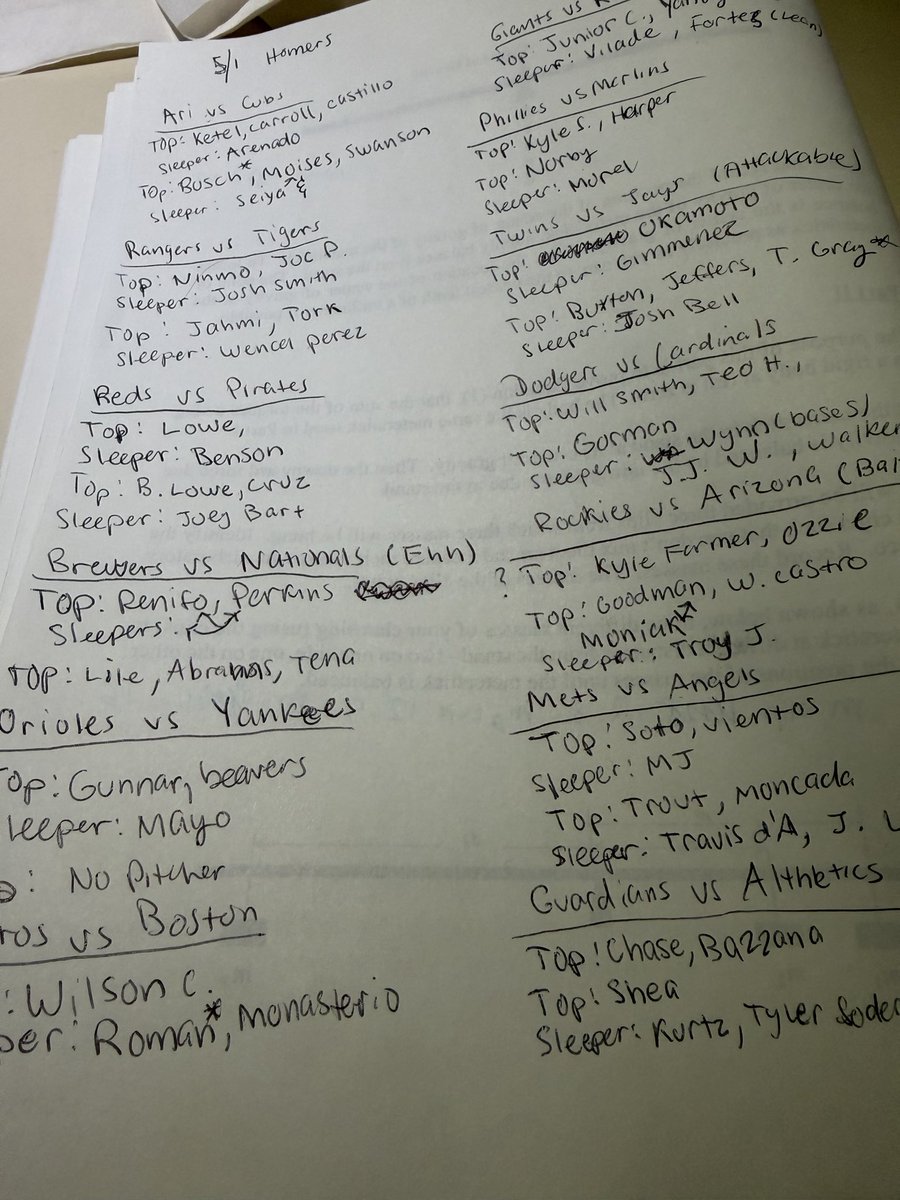 5/1 Homers
Ari vs Cubs
Top: Ketel, carroll, castillo
Sleeper: Arenado
Top: Busch*, Moises, Swanson
Sleeper: Seiya
Rangers vs Tigers
Top: Nimmo, Joc P.
Sleeper: Josh Smith
Top: Jahmi, Tork
Sleeper: Wencel perez
Reds vs Pirates
Top: Lowe,
Sleeper: Benson
Top: B. Lowe, Cruz
Sleeper: Joey Bart
Brewers vs Nationals (Ehh)
Top: Renifo, Perkins
Sleepers:
Top: Lile, Abrams, Tena
Orioles vs Yankees
Top: Gunnar, beavers
Sleeper: Mayo
: No Pitcher
ros vs Boston
: Wilson C.
per: Roman*, Monasterio
Giants vs
Top: Junior C.,
Sleeper: Vilade, Fortes (Lean)
Phillies vs Marlins
Top: Kyle S., Harper
Top: Norby
Sleeper: Morel
Twins vs Jays (Attackable)
Top: Okamoto
Sleeper: Gimmenez
Top: Buxton, Jeffers, T. Gray*
Sleeper: Josh Bell
Dodgers vs Cardinals
Top: Will Smith, Teo H.,
Top: Gorman
Sleeper: Wynn (bases)
J.J. W., Walker
Rockies vs Arizona (Bal
? Top: Kyle Farmer, Ozzie
Top: Goodman, W. Castro
Moniak
Sleeper: Troy J.
Mets vs Angels
Top: Soto, Vientos
Sleeper: MJ
Top: Trout, Moncada
Sleeper: Travis d'A, J. L
Guardians vs Althetics
Top: Chase, Bazzana
Top: Shea
Sleeper: Kurtz, Tyler Soder